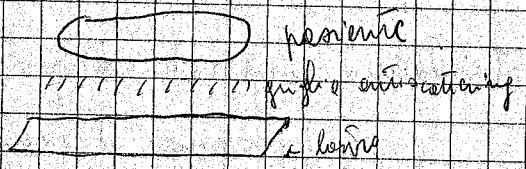 paziente
griglia antiscattering
lastra